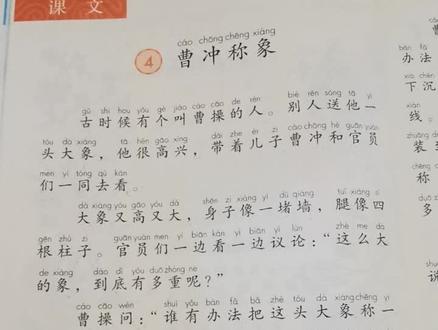 课文
cáo chōng chēng xiàng
4 曹冲称象
gǔ shí hou yǒu gè jiào cáo cāo de rén bié rén sòng tā yì
古时候有个叫曹操的人。别人送他一
tóu dà xiàng tā hěn gāo xìng dài zhe ér zi cáo chōng hé guān yuán
头大象，他很高兴，带着儿子曹冲和官员
men yì tóng qù kàn
们一同去看。
dà xiàng yòu gāo yòu dà shēn zi xiàng yì dǔ qiáng tuǐ xiàng sì
大象又高又大，身子像一堵墙，腿像四
gēn zhù zi guān yuán men yì biān kàn yì biān yì lùn zhè me dà
根柱子。官员们一边看一边议论：“这么大
de xiàng dào dǐ yǒu duō zhòng ne
的象，到底有多重呢？”
cáo cāo wèn shuí yǒu bàn fǎ bǎ zhè tóu dà xiàng chēng yì
曹操问：“谁有办法把这头大象称一
办法
下沉
线。
装
称
多
说